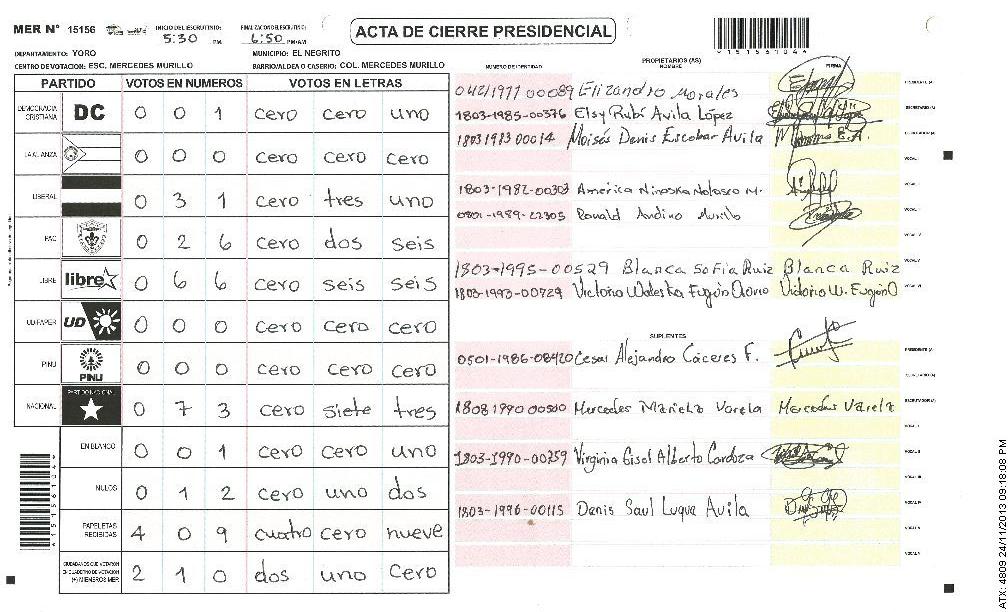 MER Nº 15156 INICIO DEL ESCRUTINIO: 5:30 PM FINALIZACION ESCRUTINIO: 6:50 PM/AM ACTA DE CIERRE PRESIDENCIAL
DEPARTAMENTO: YORO MUNICIPIO: EL NEGRITO
CENTRO DE VOTACION: ESC. MERCEDES MURILLO BARRIO/ALDEA O CASERIO: COL. MERCEDES MURILLO
PARTIDO VOTOS EN NUMEROS VOTOS EN LETRAS
DEMOCRACIA CRISTIANA DC 0 0 1 cero cero uno
LA ALIANZA 0 0 0 cero cero cero
LIBERAL 0 3 1 cero tres uno
PAC 0 2 6 cero dos seis
LIBRE libre 0 6 6 cero seis seis
UD FAPER UD 0 0 0 cero cero cero
PINU PINU 0 0 0 cero cero cero
NACIONAL PARTIDO NACIONAL 0 7 3 cero siete tres
EN BLANCO 0 0 1 cero cero uno
NULOS 0 1 2 cero uno dos
PAPELETAS RECIBIDAS 4 0 9 cuatro cero nueve
CIUDADANOS QUE VOTARON EN CUADERNO DE VOTACION (+) MIEMBROS MER 2 1 0 dos uno cero
NUMERO DE IDENTIDAD PROPIETARIOS (AS) NOMBRE FIRMA
Elizandro Morales PRESIDENTE (A)
1803-1985-00376 Elsy Rubí Avila López SECRETARIO (A)
1803 1983 00014 Moisés Denis Escobar Avila ESCRUTADOR (A)
VOCAL I
1803-1982-00303 America Ninoska Nolasco M. VOCAL II
0801-1989-22305 Ronald Andino Murillo VOCAL III
VOCAL IV
1803-1995-00529 Blanca Sofia Ruiz Blanca Ruiz VOCAL V
1803-1993-00729 Victoria Waleska Fugón Victoria W. Fugón O VOCAL VI
SUPLENTES
0501-1986-08420 Cesar Alejandro Cáceres F. PRESIDENTE (A)
SECRETARIO (A)
1808 1990 00500 Mercedes Mariela Varela Mercedes Varela ESCRUTADOR (A)
VOCAL I
1803-1990-00759 Virginia Gisel Alberto Cardoza VOCAL II
VOCAL III
1803-1996-00115 Denis Saul Luque Avila VOCAL IV
VOCAL V
VOCAL VI
ATX: 4809 24/11/2013 09:18:08 PM